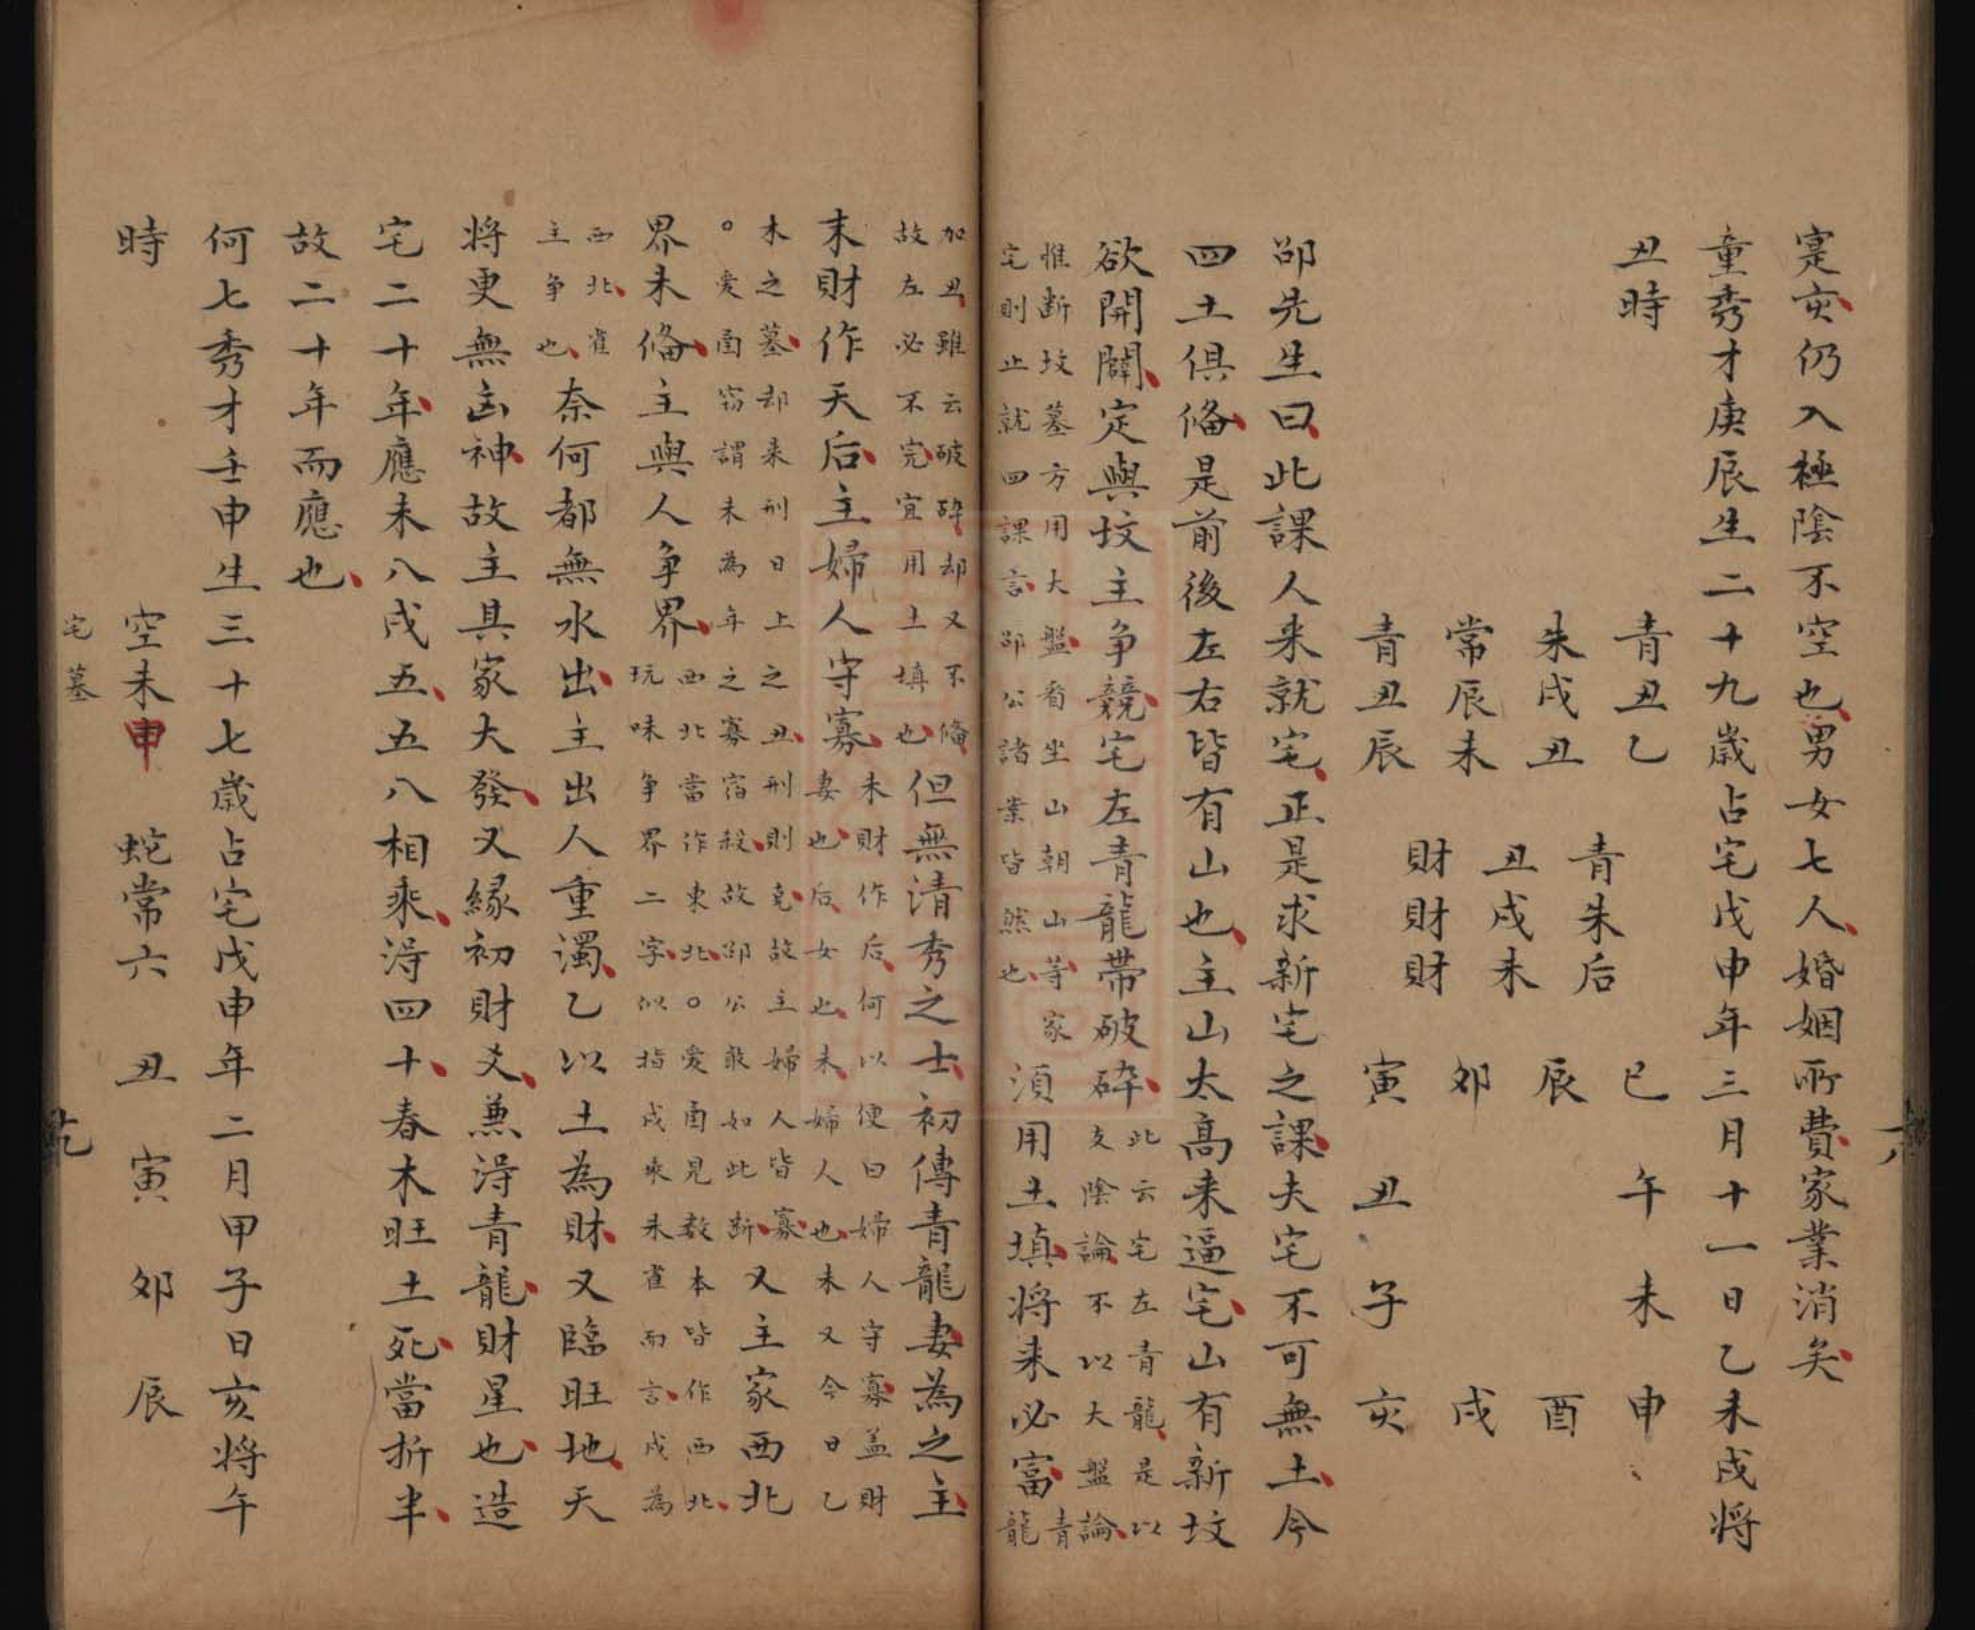 寔亥仍入極陰不空也男女七人婚姻所費家業消矣
童秀才庚辰生二十九歲占宅戊申年三月十一日乙未戌將
丑時
青丑乙
朱戌丑
常辰未
青丑辰
青朱后
丑戌未
財財財
巳午未申
辰酉
夘戌
寅丑子亥
邵先生曰此課人来就宅正是求新宅之課夫宅不可無土今
四土俱偹是前後左右皆有山也主山太高来逼宅山有新坟
欲開闢定與坟主争競宅左青龍帶破碎
此云宅左青龍是以
支陰論不以大盤論
惟断坟墓方用大盤看坐山朝山等家
宅則止就四課言邵公諸業皆然也
湏用土填将来必富
青
龍
加丑雖云破碎却又不偹
故左必不完宜用土填也
但無清秀之士初傳青龍妻為之主
末財作天后主婦人守寡
未財作后何以便曰婦人守寡盖財
妻也后女也未婦人也未又今日乙
木之墓却来刑日上之丑刑則克故主婦人皆寡
○爱函窃謂未為年之寡宿殺故邵公敢如此断
又主家西北
界未偹主與人争界
西北當作東北○爱函見教本皆作西北
玩味争界二字似指戌乘朱雀而言戌為
西北雀
主争也
奈何都無水出主出人重濁乙以土為財又臨旺地天
將更無凶神故主具家大發又緣初財爻兼淂青龍財星也造
宅二十年應未八戌五五八相乘淂四十春木旺土死當折半
故二十年而應也
何七秀才壬申生三十七歲占宅戊申年二月甲子日亥將午
時
空未申
宅墓
蛇常六
丑寅夘辰